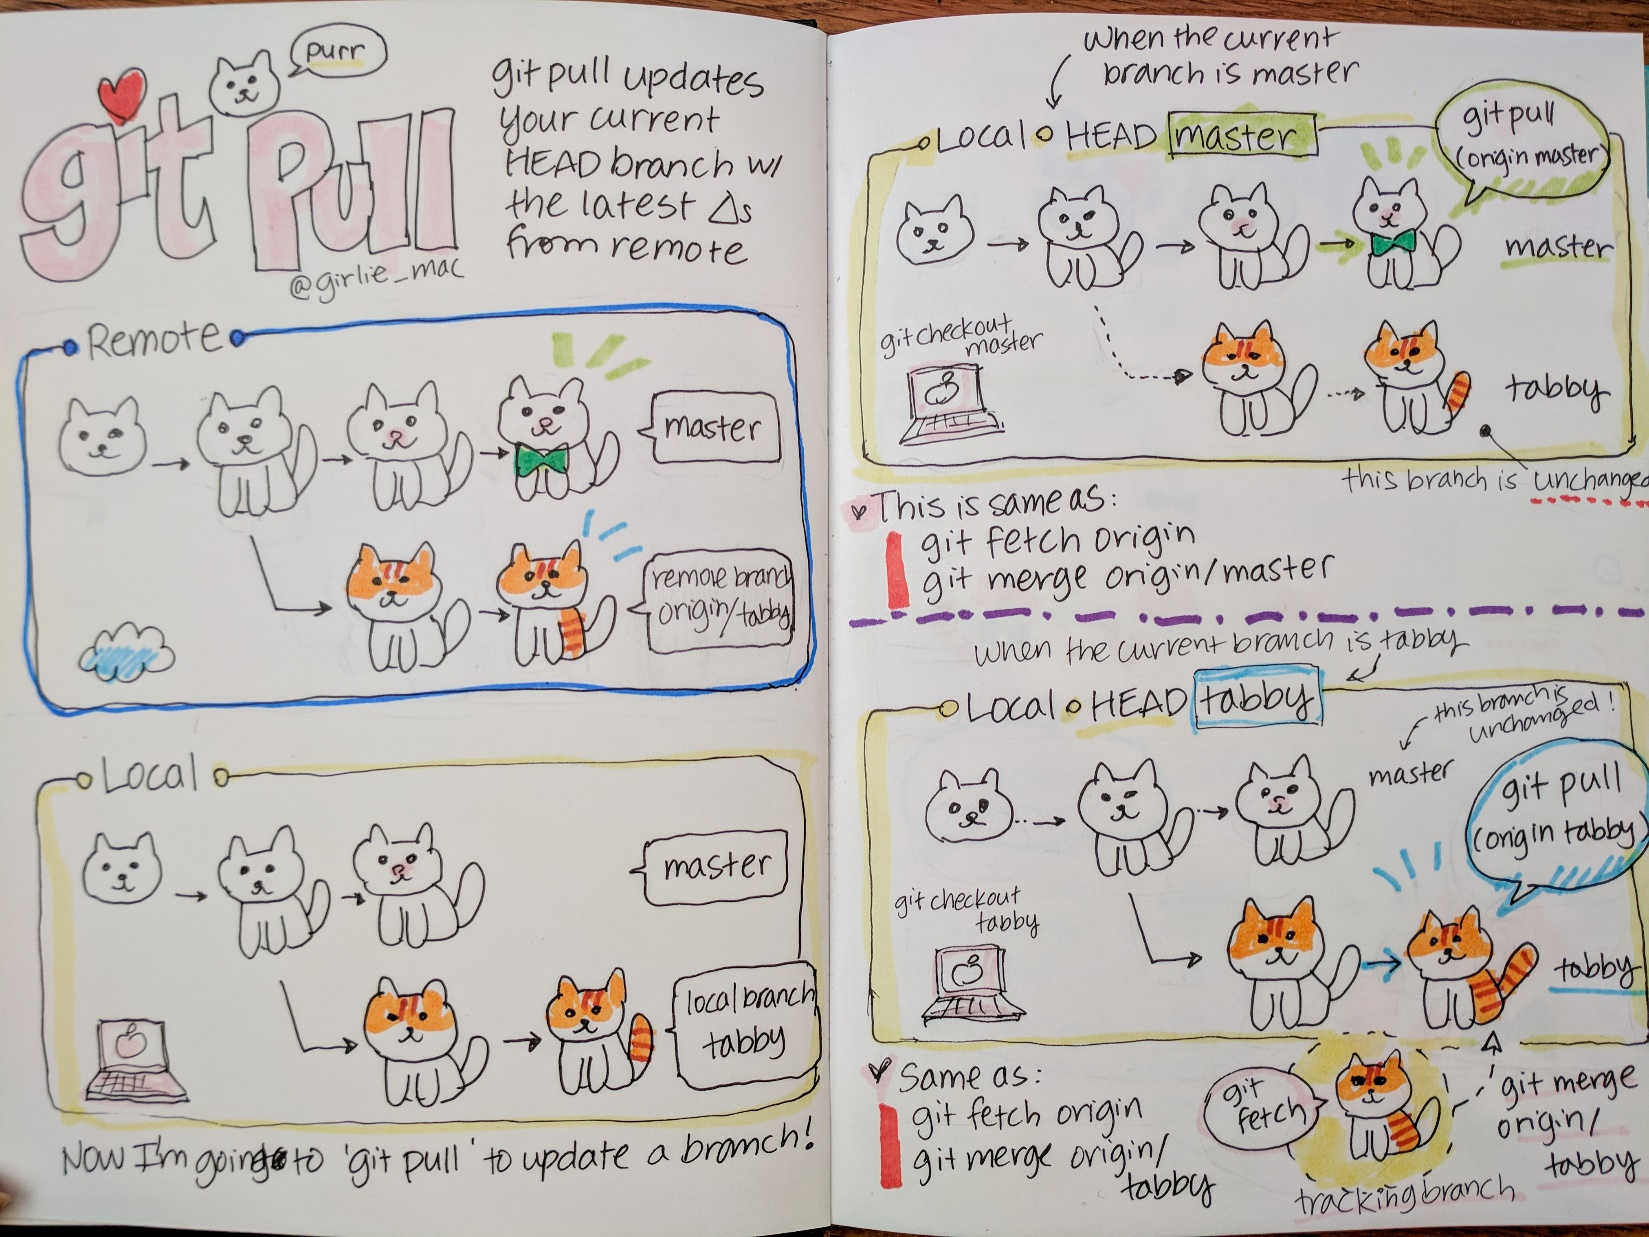 purr
git pull
@girlie_mac
git pull updates
your current
HEAD branch w/
the latest Δs
from remote
Remote
master
remote branch
origin/tabby
Local
master
local branch
tabby
Now I'm going to 'git pull' to update a branch!
When the current
branch is master
Local HEAD master
git pull
(origin master)
master
git checkout
master
tabby
this branch is unchanged
This is same as:
git fetch origin
git merge origin/master
When the current branch is tabby
Local HEAD tabby
this branch is
unchanged!
master
git pull
(origin tabby)
git checkout
tabby
tabby
Same as:
git fetch origin
git merge origin/
tabby
git
fetch
git merge
origin/
tabby
tracking branch